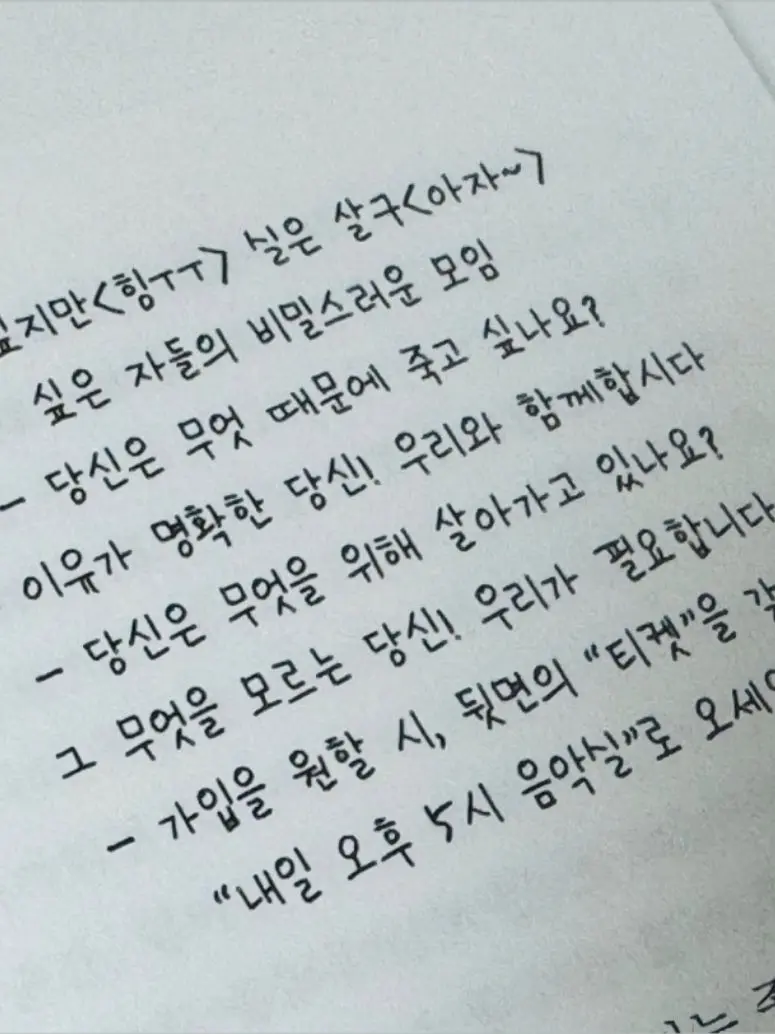 싶지만<힝ㅜㅜ> 실은 살구<아자~>
싶은 자들의 비밀스러운 모임
- 당신은 무엇 때문에 죽고 싶나요?
이유가 명확한 당신! 우리와 함께합시다
- 당신은 무엇을 위해 살아가고 있나요?
그 무엇을 모르는 당신! 우리가 필요합니다
- 가입을 원할 시, 뒷면의 "티켓"을
"내일 오후 5시 음악실"로 오세